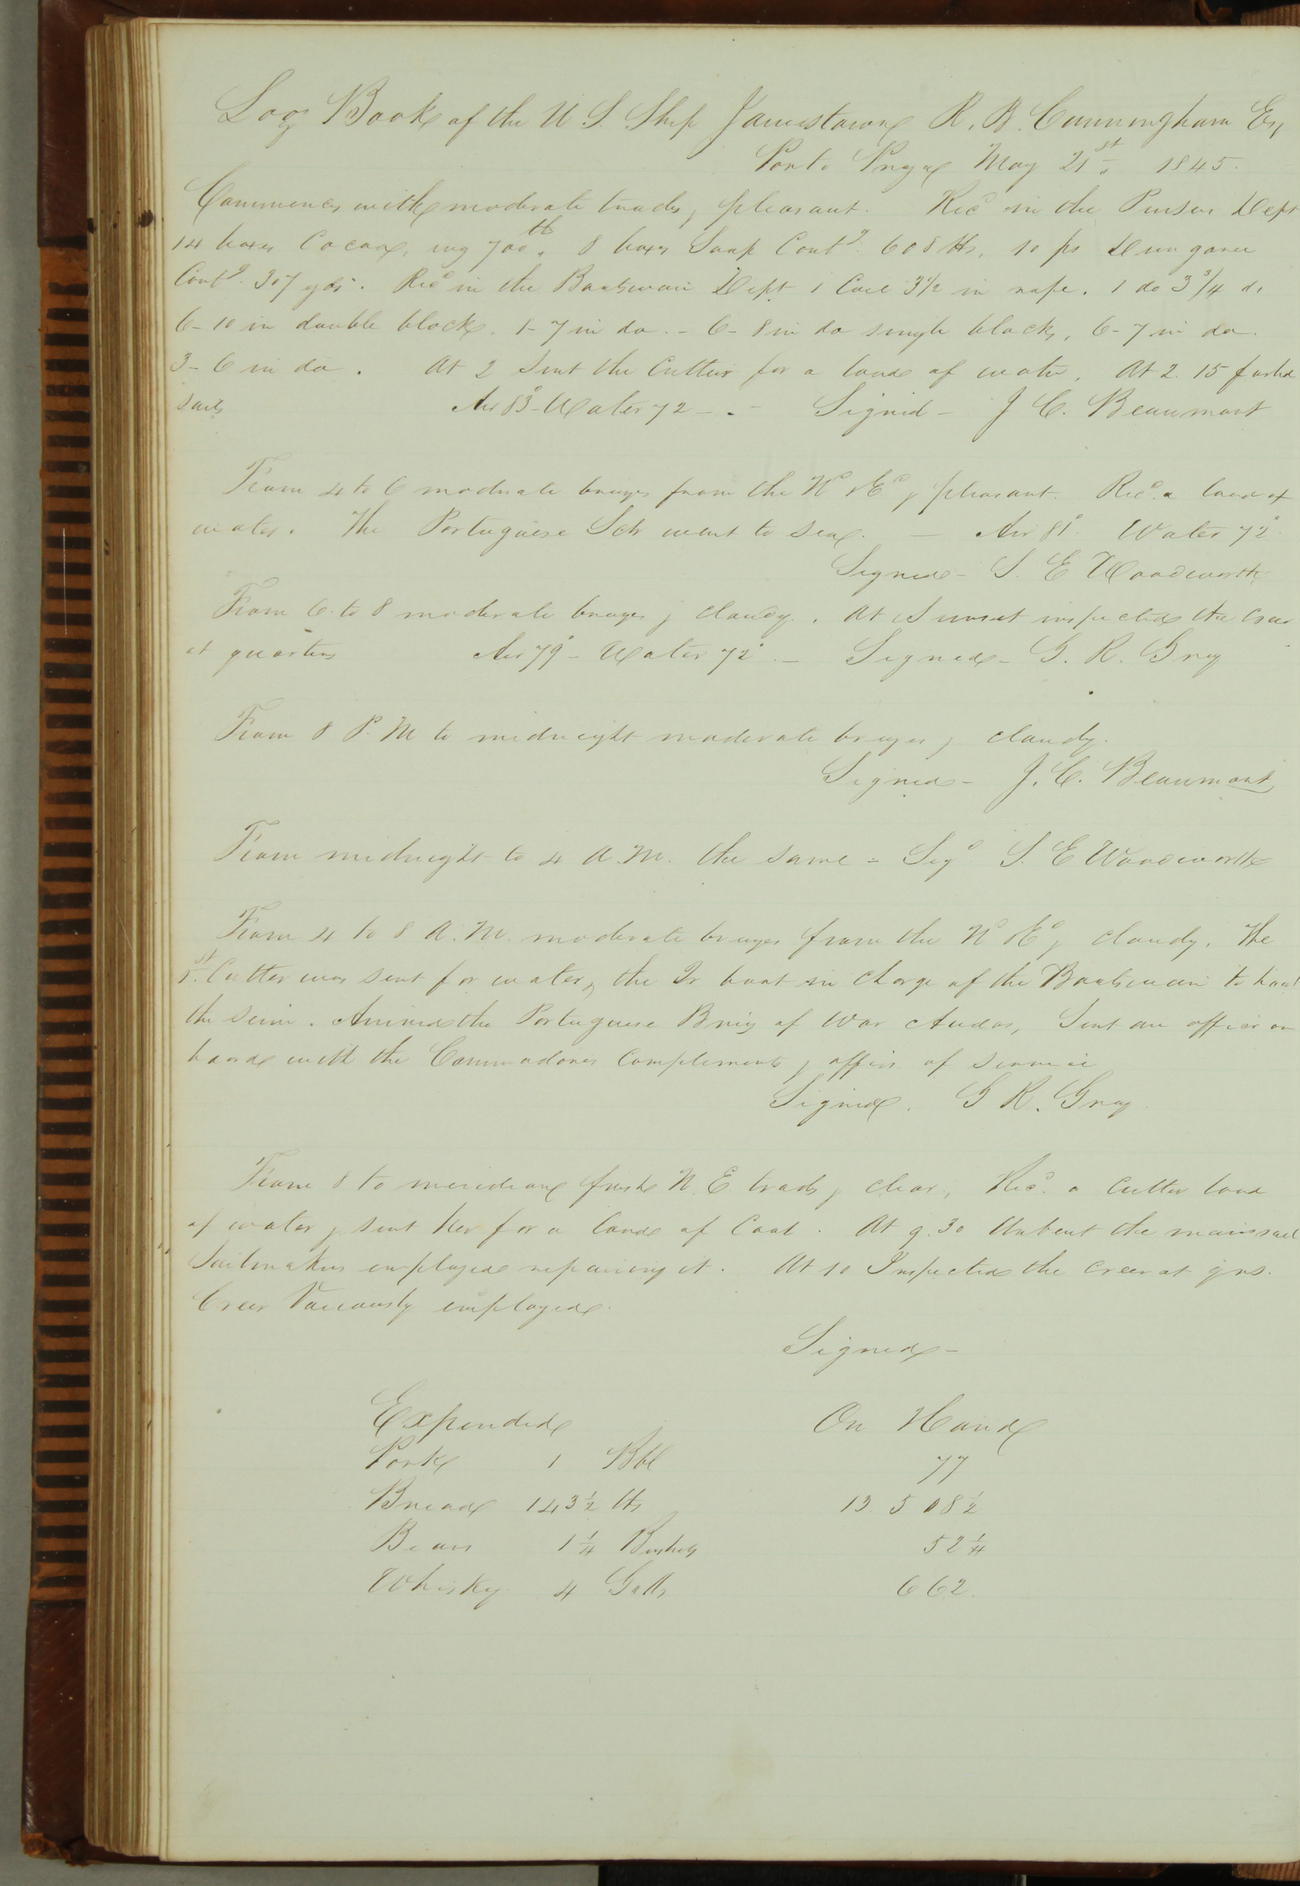 Log Book of the U S. Ship Jamestown R. B. Cunningham Esq
Porto Praya May 21st 1845.
Commences with moderate trades & pleasant. Recd in the Pursers Dept
14 boxes Cocoa, wg 700 lb. 8 boxes Soap Contg 608 lbs. 10 ps Dungaree
Contg 307 yds. Recd in the Boatswain Dept 1 Coil 3 1/2 in rope. 1 do 3 3/4 do
6-10 in double blocks. 1-7 in do. - 6-8 in do single blocks, 6-7 in do.
3-6 in do. At 2 Sent the Cutter for a load of water. At 2.15 furled
sails Air 83° - Water 72 - . - Signed - J C. Beaumont
From 4 to 6 moderate breezes from the Nd & Ed & pleasant. Recd a load of
water. The Portuguese Sch went to sea. - Air 81° Water 72°
Signed - S. E Woodworth
From 6 to 8 moderate breezes & cloudy. At Sunset inspected the Crew
at quarters Air 79° - Water 72° - Signed - G. R. Gray
From 8 P. M to midnight moderate breezes & cloudy.
Signed - J. C. Beaumont
From midnight to 4 A. M. the same - Sigd S. E Woodworth
From 4 to 8 A. M. moderate breezes from the Nd & Ed & cloudy. The
1st Cutter was sent for water, & the Gr boat in charge of the Boatswain to haul
the seine. Arrived the Portuguese Brig of War Audas, Sent an officer on
board with the Commodores Compliments & offers of service
Signed. G R. Gray
From 8 to meridian fresh N. E trades & clear, Recd. a Cutter load
of water & sent her for a load of Coal. At 9.30 Unbent the mainsail
Sailmakers employed repairing it. At 10 Inspected the crew at qrs.
Crew Variously employed.
Signed -
Expended On Hand
Pork 1 Bbl 77
Bread 143 1/2 lbs 13 508 1/2
Beans 1 1/4 Bushels 52 1/4
Whisky 4 Galls 662.